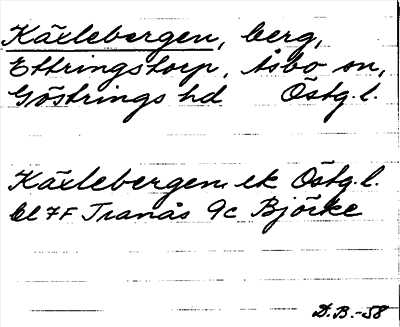 Käxlebergen, berg,
Ettringstorp, Åsbo sn,
Göstrings hd Östg. l.
Käxlebergen ek Östg. l.
bl 7F Tranås 9c Björke
D. B. -58